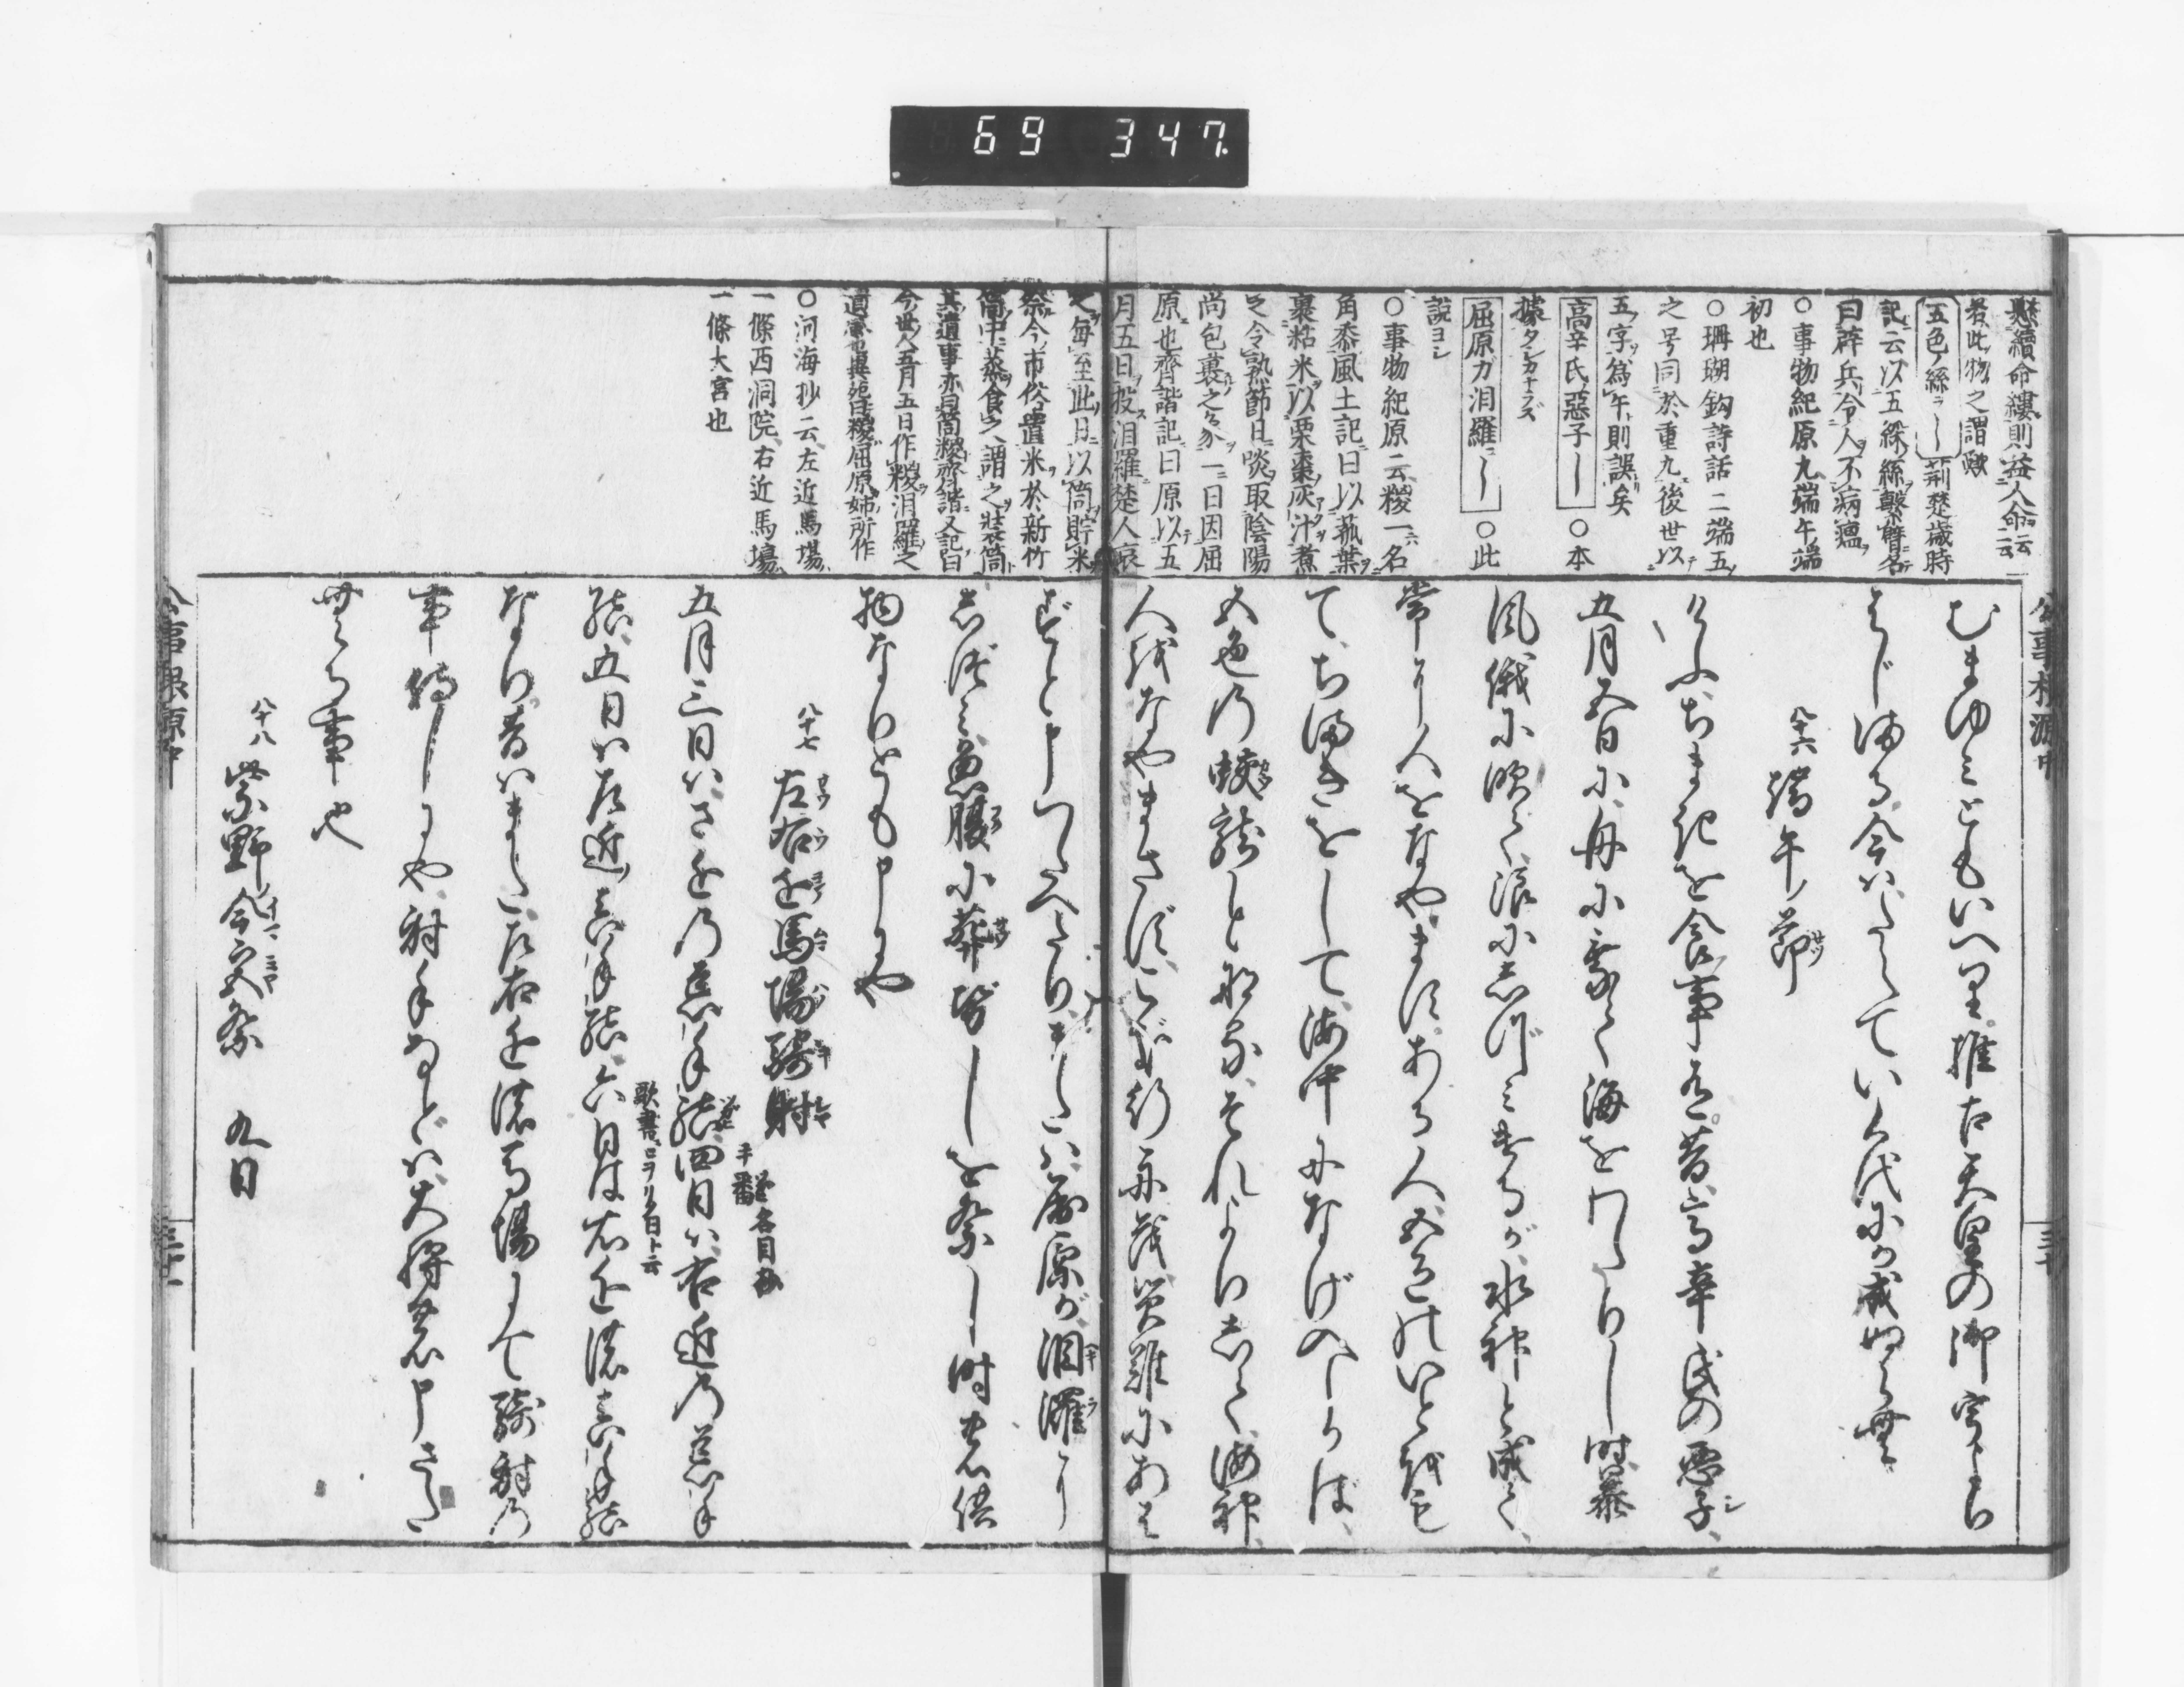 69 347
懸續命縷則益人命云云
若此物之謂歟
五色ノ絲ヲ― 荊楚歳時
記云以五綵絲繫臂名
曰辟兵令人不病瘟
○事物紀原九端午端
初也
○珊瑚鈎詩話二端五
之号同於重九後世以
五字為午則誤矣
高辛氏惡子― ○本
據タシカナラズ
屈原ガ汨羅ニ― ○此
說ヨシ
○事物紀原云糉一名
角黍風土記曰以菰葉
裹粘米以栗棗灰汁煮
之令熟節日啖取陰陽
尚包裹之象一曰因屈
原也齊諧記曰原以五
月五日投汨羅楚人哀
之每至此日以筒貯米
祭今市俗置米於新竹
筒中蒸食之謂之裝筒
其遺事亦曰筒糉齊諧又記曰
今世人五月五日作糉汨羅之
遺風也異苑曰糉屈原姉所作
○河海抄云左近馬場
一條西洞院右近馬場
一條大宮也
公事根源中
むまゆみともいへり推古天皇の御宇より
はじまる今はたえていく代にか成ぬらむ
八十六 端午ノ節
けふちまきを食事は昔高辛氏の悪子
五月五日に舟に乗て海をわたりし時暴
風俄に吹て浪にしづみけるが水神と成て
常に人をなやますある人五色のいとをも
てちまきをして海中になげ入しかば
五色の蛟龍となるそれよりして海神
人をなやまさず
ずと申つたへたり又は屈原が汨羅に
しづみ魚腹に葬せしを祭し時の供
物なりとも申にや
八十七 左右近馬場騎射
五月三日は左近の荒手結四日は右近の荒手
結五日は左近真手結六日は右近の真手結
なり昔はまた左右近の馬場にて騎射の
事侍しにや射手などは大将の申さた
せらる事也
八十八 紫野今宮祭 九日
公事根源中